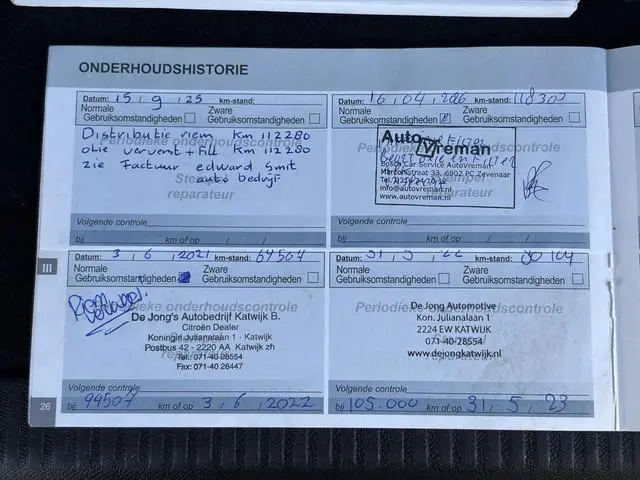 ONDERHOUDSHISTORIE
Datum: 15, 9, 25 km-stand:
Normale Gebruiksomstandigheden
Zware Gebruiksomstandigheden
Distributie riem km 112280
olie ververst + Filt km 112280
zie Factuur edward Smit
auto bedrijf
reparateur
Volgende controle
bij km of op / /
Datum: 16, 04, 2026 km-stand: 118302
Normale Gebruiksomstandigheden
Zware Gebruiksomstandigheden
Auto Vreman
Bosch Car Service AutoVreman
Marconistraat 33, 6902 PC Zevenaar
info@autovreman.nl
www.autovreman.nl
Stempel
reparateur
Volgende controle
bij km of op / /
III
Datum: 3, 6, 2021 km-stand: 64504
Normale Gebruiksomstandigheden
Zware Gebruiksomstandigheden
Periodieke onderhoudscontrole
De Jong's Autobedrijf Katwijk B.
Citroën Dealer
Koningin Julianalaan 1 - Katwijk
Postbus 42 - 2220 AA Katwijk zh
Tel.: 071-40 28554
Fax: 071-40 26447
reparateur
Volgende controle
bij 94507 km of op 3, 6, 2022
km-stand:
Normale Gebruiksomstandigheden
Zware Gebruiksomstandigheden
Periodieke onderhoudscontrole
De Jong Automotive
Kon. Julianalaan 1
2224 EW KATWIJK
071-40-28554
www.dejongkatwijk.nl
Volgende controle
bij 105.000 km of op 31, 5, 23
26